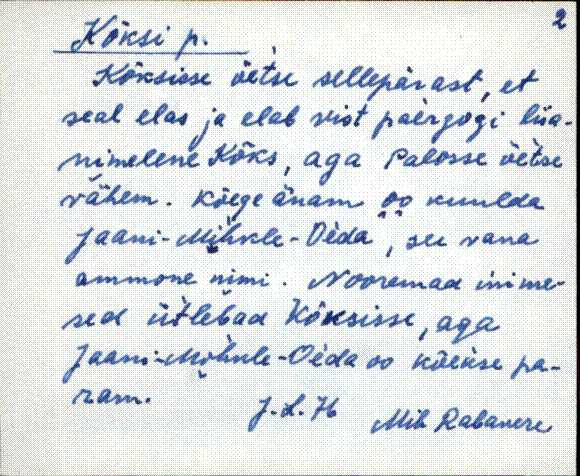 2
Kõksi p.
Kõksisse öetse sellepärast, et
seal elas ja elab vist päergogi liia-
nimelene Kõks, aga Palosse öetse
vähem. Kõege änam oo kuulda
Jaani-Mihkle-Oeda, see vana
ammone nimi. Nooremad inime-
sed ütlebad Kõksisse, aga
Jaani-Mihkle-Oeda oo kõeuse pa-
ram.
J.L.H
Mih Rabavere